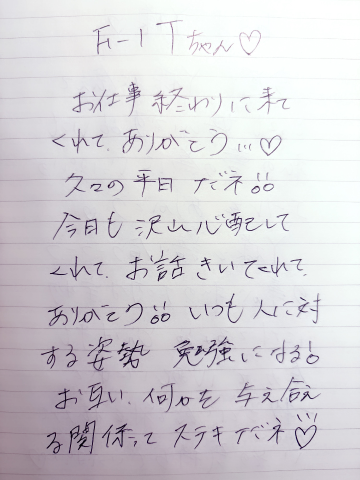 Tちゃん♡
お仕事 終わりに来て
くれて、ありがとう…♡
久々の平日 だネ!!
今日も 沢山心配して
くれて、お話 きいてくれて、
ありがとう!! いつも 人に対
する姿勢 勉強になる!
お互い、何かを 与え合え
る関係って ステキ だネ♡